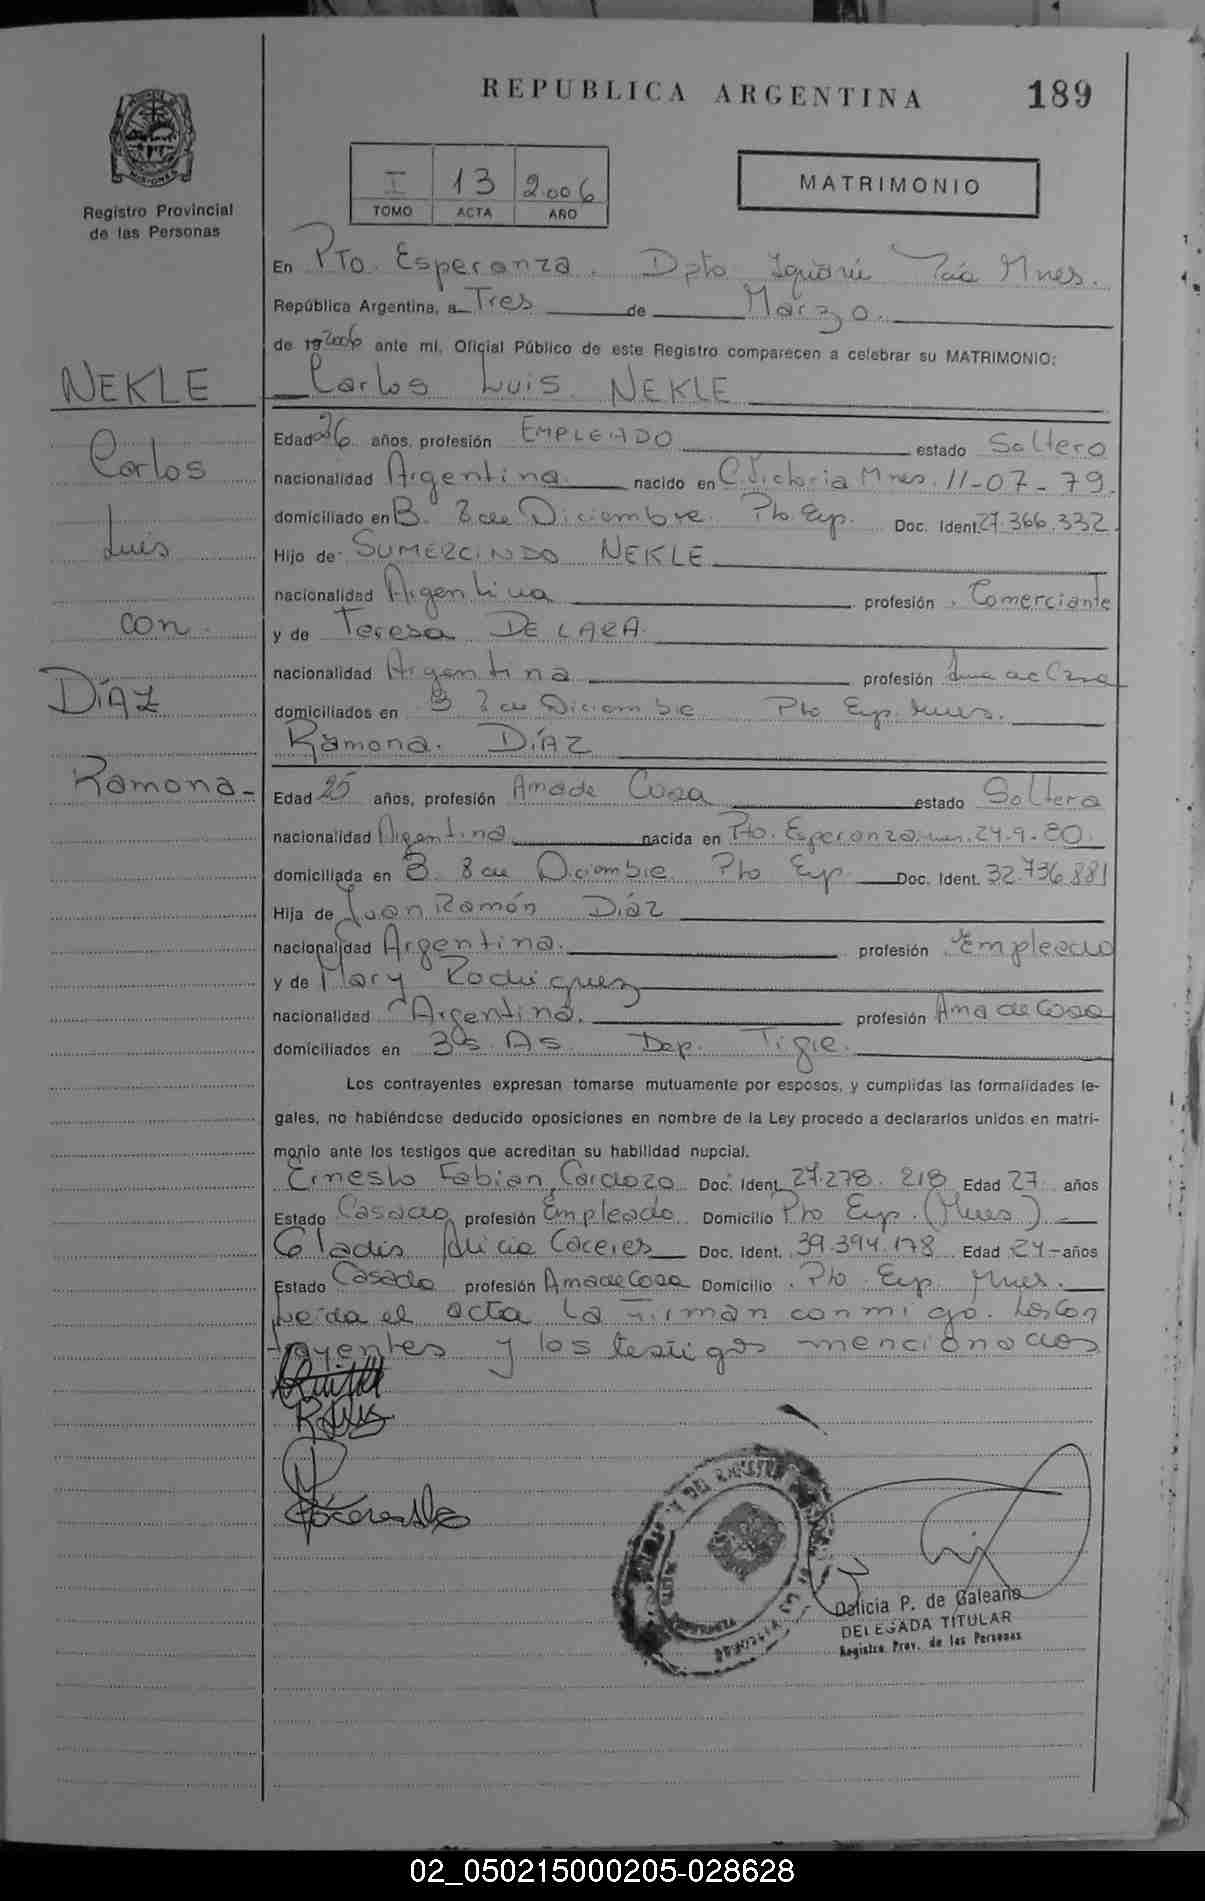 REPUBLICA ARGENTINA 189
MISIONES
Registro Provincial
de las Personas
I 13 2.006
TOMO ACTA AÑO
MATRIMONIO
En Pto. Esperanza. Dpto Iguazú Mnes.
República Argentina, a Tres de Marzo.
de 19 2006 ante mí, Oficial Público de este Registro comparecen a celebrar su MATRIMONIO:
Carlos Luis NEKLE
NEKLE
Carlos
Luis
con
DÍAZ
Ramona-
Edad 26 años, profesión EMPLEADO estado Soltero
nacionalidad Argentina nacido en C. Victoria Mnes. 11-07-79.
domiciliado en B. 8 de Diciembre. Pto Esp. Doc. Ident. 27.366.332
Hijo de SUMERCINDO NEKLE
nacionalidad Argentina profesión Comerciante
y de Teresa DE LARA
nacionalidad Argentina profesión Ama de Casa
domiciliados en B 8 de Diciembre Pto Esp. Mnes.
Ramona. DÍAZ
Edad 25 años, profesión Ama de Casa estado Soltera
nacionalidad Argentina nacida en Pto. Esperanza 24-9-80.
domiciliada en B. 8 de Diciembre Pto Esp Doc. Ident. 32.736.881
Hija de Juan Ramón Díaz
nacionalidad Argentina. profesión Empleado
y de Mary Rodriguez
nacionalidad Argentina. profesión Ama de Casa
domiciliados en Bs. As. Dep. Tigre.
Los contrayentes expresan tomarse mutuamente por esposos, y cumplidas las formalidades le-
gales, no habiéndose deducido oposiciones en nombre de la Ley procedo a declararlos unidos en matri-
monio ante los testigos que acreditan su habilidad nupcial.
Ernesto Fabian Cardozo Doc. Ident. 27.278.218 Edad 27 años
Estado Casado profesión Empleado Domicilio Pto Esp. (Mnes)
Gladis Alicia Caceres Doc. Ident. 39.394.178 Edad 24 años
Estado Casada profesión Ama de Casa Domicilio Pto Esp. Mnes.
Leída el acta la firman conmigo los con
trayentes y los testigos mencionados
Dalicia P. de Galeano
DELEGADA TITULAR
Registro Prov. de las Personas
02_050215000205-028628